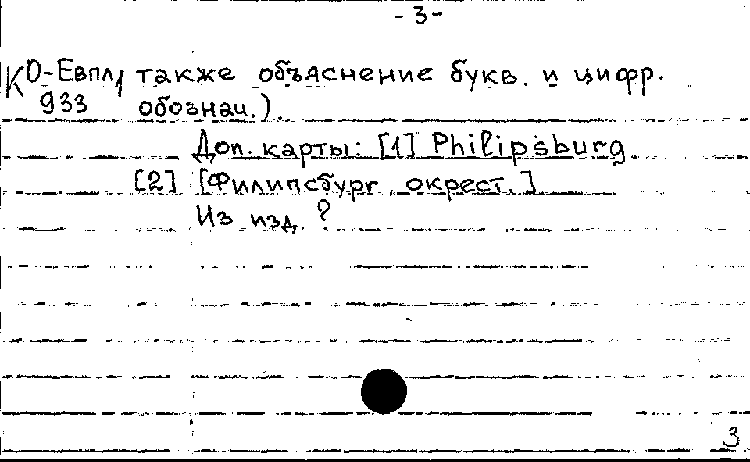 -3-
КО-Евпл, также объяснение букв. и цифр.
933 обознач.).
Доп. карты: [1] Philipsburg.
[2] [Филипсбург, окрест.]
Из изд. ?
3